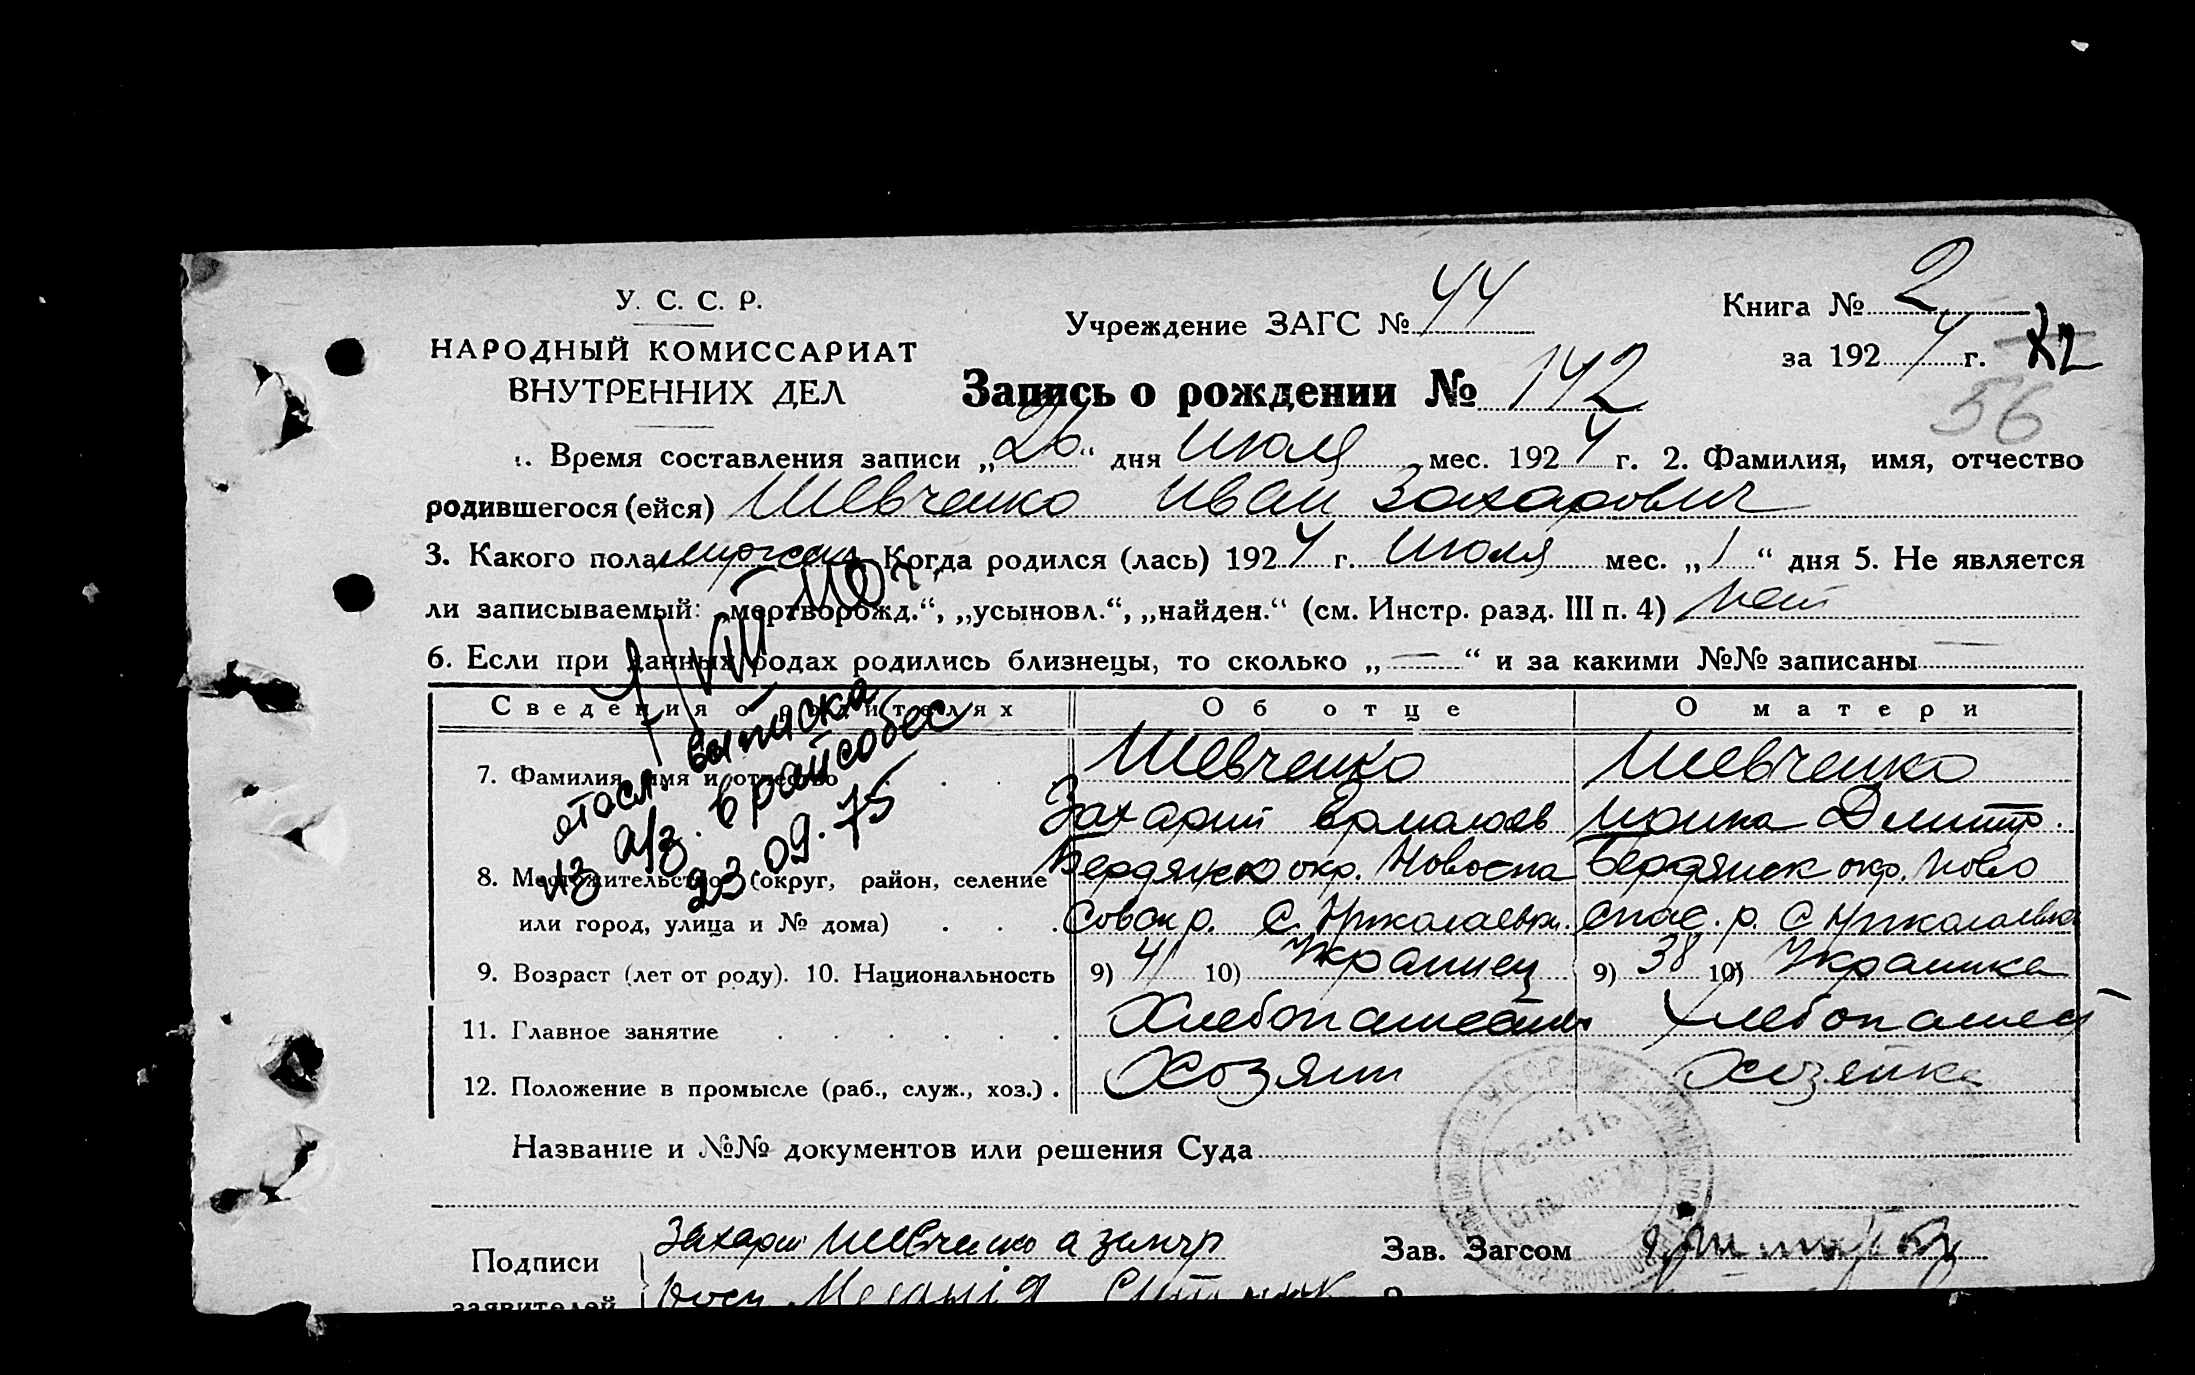 У. С. С. Р.
НАРОДНЫЙ КОМИССАРИАТ
ВНУТРЕННИХ ДЕЛ
Учреждение ЗАГС № 44
Книга № 2
за 1924 г.
56
Запись о рождении № 142
1. Время составления записи „26“ дня Июля мес. 1924 г. 2. Фамилия, имя, отчество
родившегося (ейся) Шевченко Иван Захарович
3. Какого пола мужск Когда родился (лась) 1924 г. Июля мес. „1“ дня 5. Не является
ли записываемый: „мертворожд.“, „усыновл.“, „найден.“ (см. Инстр. разд. III п. 4) Нет
6. Если при данных родах родились близнецы, то сколько „—“ и за какими №№ записаны —
Сведения о родителях Об отце О матери
7. Фамилия, имя и отчество . . . Шевченко Шевченко
Захарий Ермолаев Ирина Дмитр.
8. Местожительство (округ, район, селение Бердянск окр. Новоспа Бердянск окр. Ново
или город, улица и № дома) . . . совск р. С. Николаевк. спас. р. С Николаевка
9. Возраст (лет от роду). 10. Национальность 9) 41 10) Украинец 9) 38 10) Украинка
11. Главное занятие . . . . . . Хлебопашест Хлебопашест
12. Положение в промысле (раб., служ., хоз.) . Хозяин Хозяйка
отосл. выписка
из а/з. в райсобес
23 09. 75
Название и №№ документов или решения Суда
Подписи Захарий Шевченко а
заявителей
Зав. Загсом
ПЕЧАТЬ